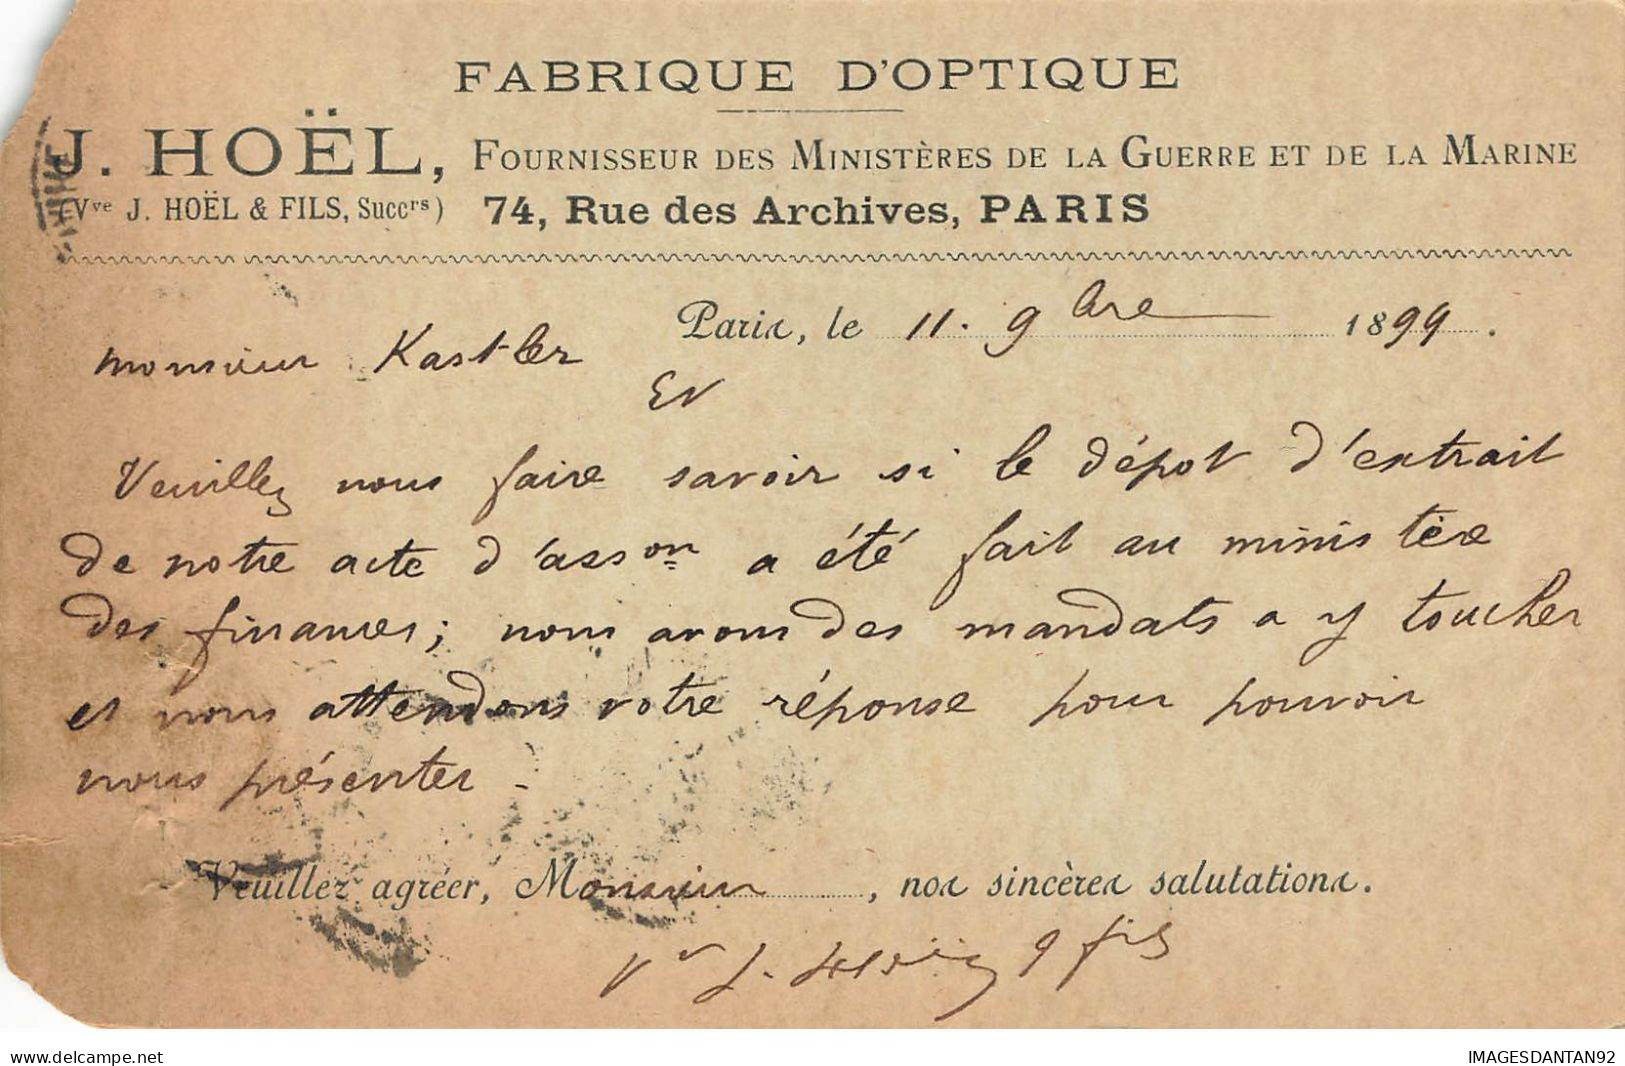 FABRIQUE D'OPTIQUE
J. HOËL, FOURNISSEUR DES MINISTÈRES DE LA GUERRE ET DE LA MARINE
(Vve J. HOËL & FILS, Succrs) 74, Rue des Archives, PARIS
Paris, le 11. 9bre 1899.
Monsieur Kastler
EV
Veuillez nous faire savoir si le dépot d'extrait
de notre acte d'asson a été fait au ministère
des finances; nous avons des mandats a y toucher
et nous attendons votre réponse pour pouvoir
nous présenter.
Veuillez agréer, Monsieur, nos sincères salutations.
Vve J. Hoël & fils
delcampe.net
IMAGESDANTAN92